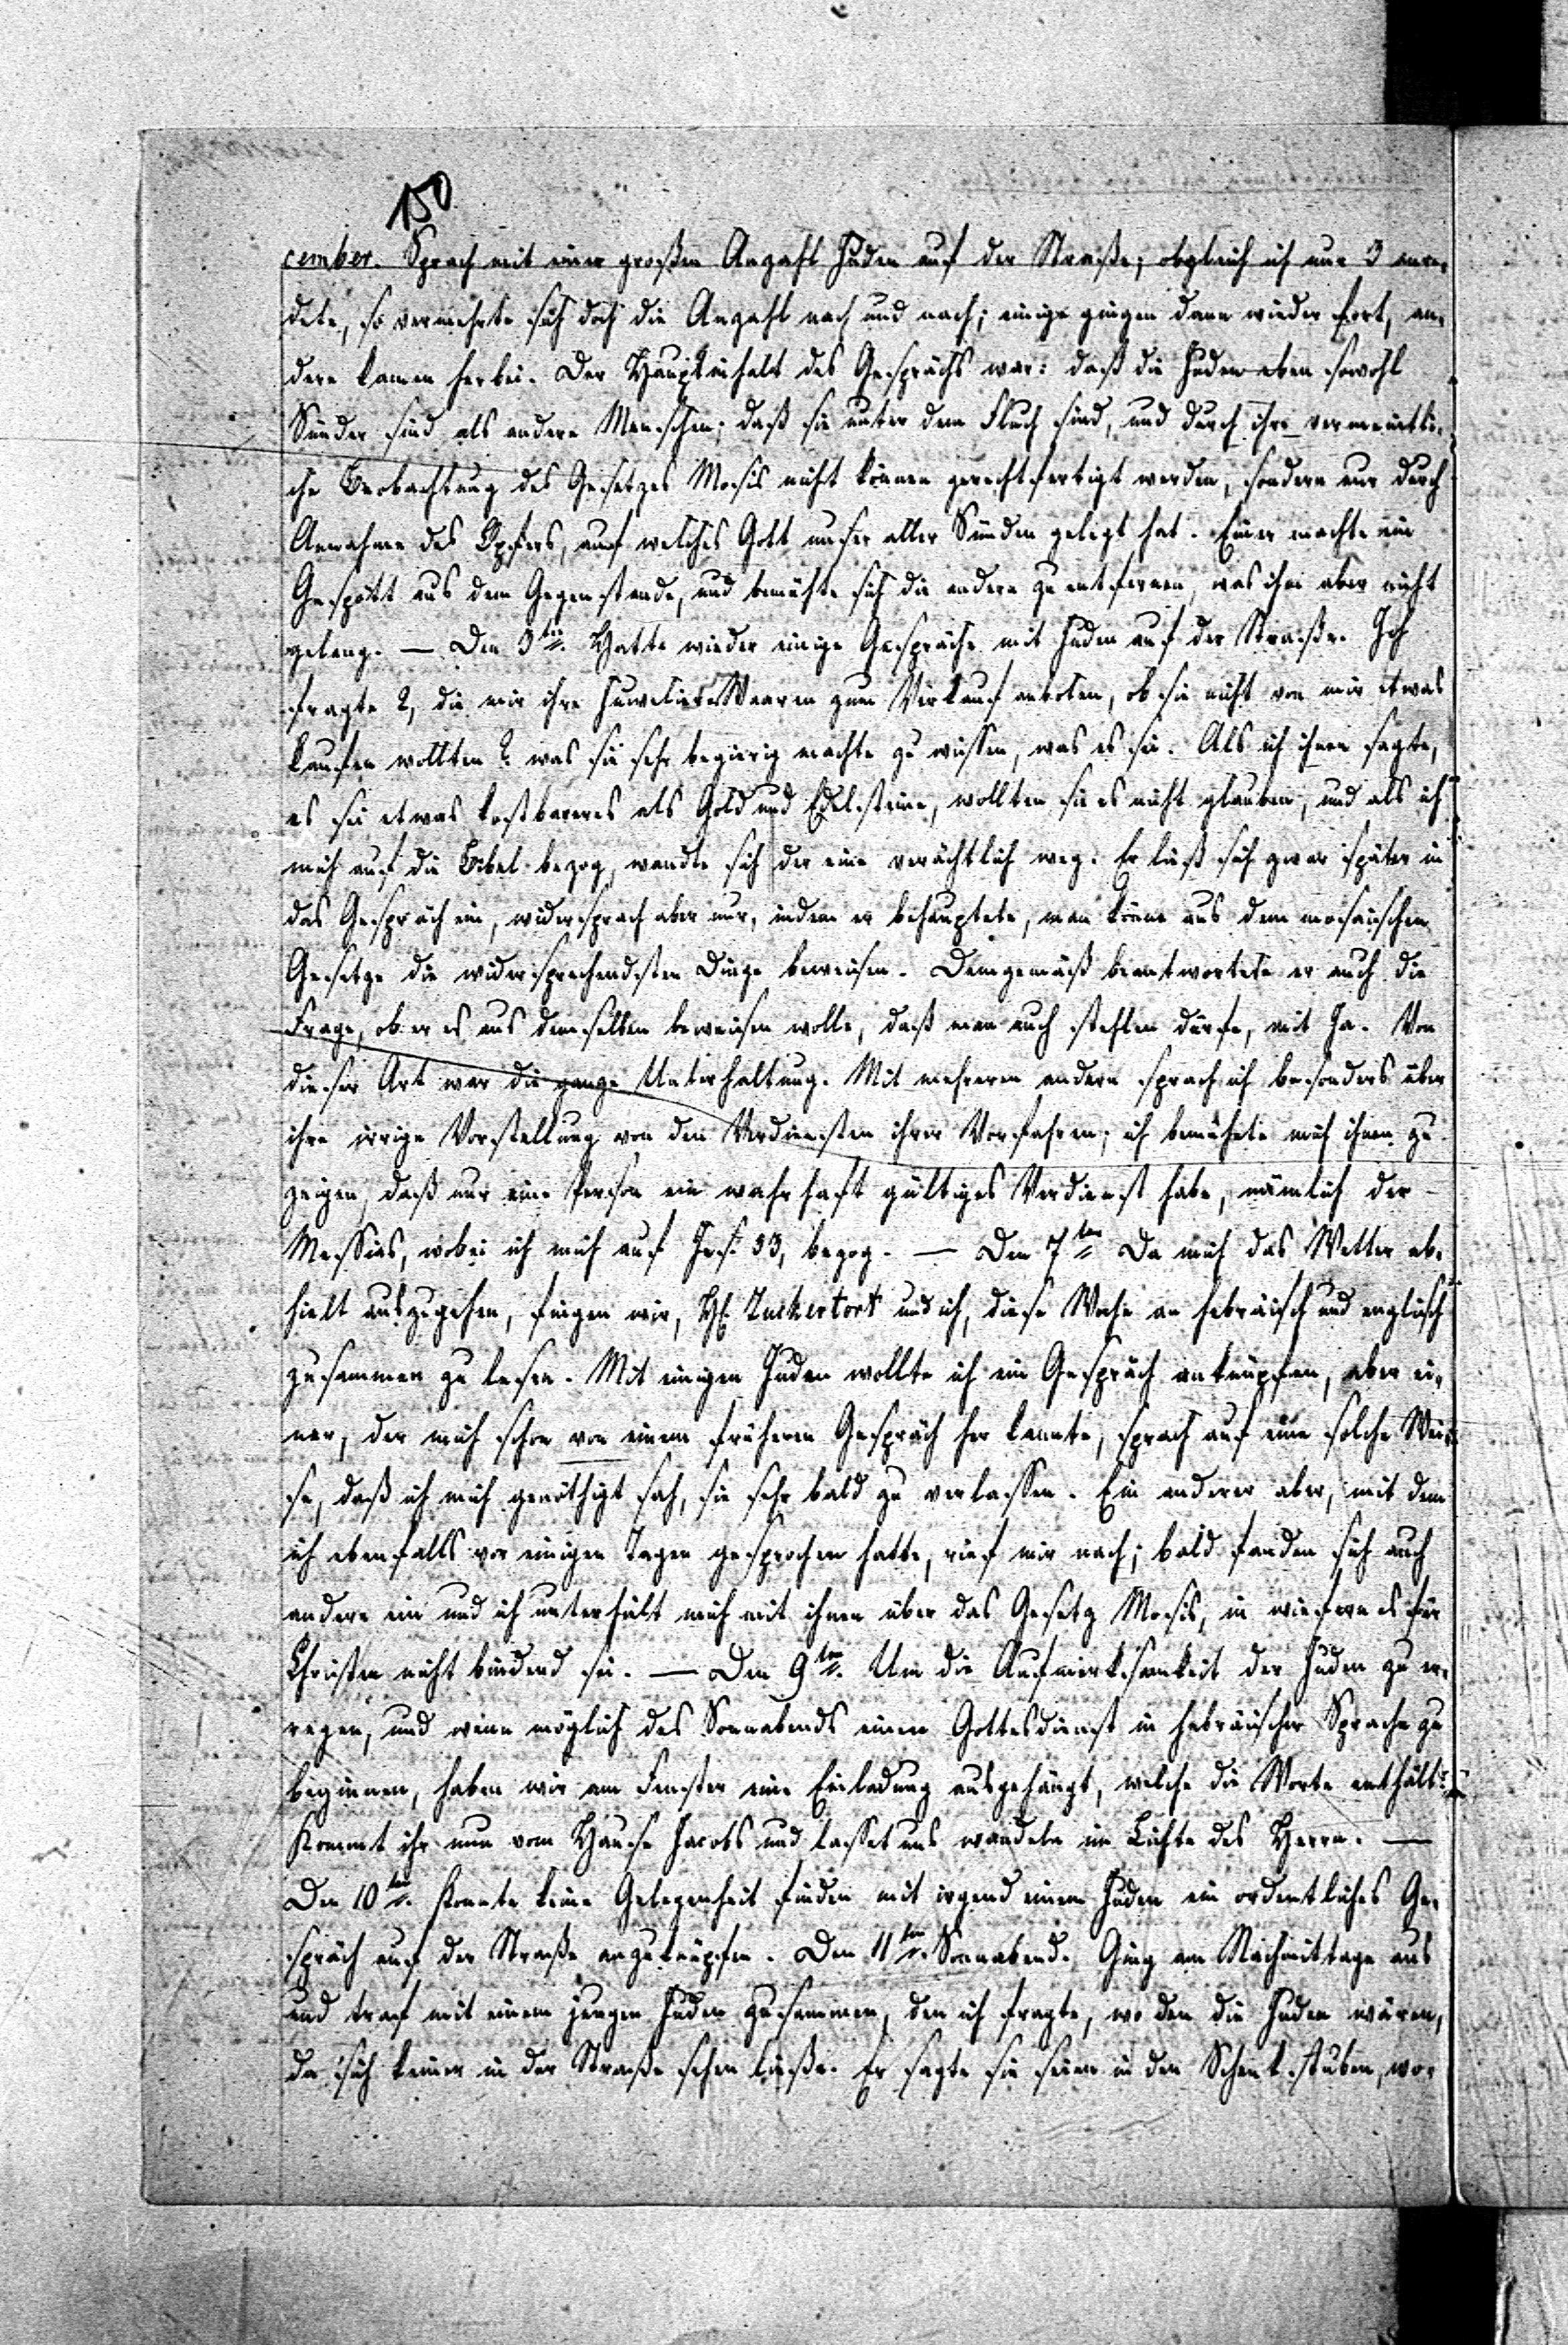 150
cember. Sprach mit einer großen Anzahl Juden auf der Straße; obgleich ich nur 3 anre-
dete, so vermehrte sich doch die Anzahl nach und nach; einige gingen dann wieder fort, an-
dere kamen herbei. Der Hauptinhalt des Gesprächs war: daß die Juden eben sowohl
Sünder sind als andere Menschen; daß sie unter dem Fluch sind, und durch ihre vermeintli-
che Beobachtung des Gesetzes Mosis nicht können gerechtfertigt werden, sondern nur durch
Annahme des Opfers, auf welches Gott unser aller Sünden gelegt hat. Einer machte ein
Gespött aus dem Gegenstande, und bemühte sich die andern zu entfernen, was ihm aber nicht
gelang. — Den 3ten. Hatte wieder einige Gespräche mit Juden auf der Straße. Ich
fragte 2, die mir ihre Juwelier Waaren zum Verkauf anboten, ob sie nicht von mir etwas
kaufen wollten? was sie sehr begierig machte zu wissen, was es sei. Als ich ihnen sagte,
es sei etwas kostbareres als Gold und Edelsteine, wollten sie es nicht glauben, und als ich
mich auf die Bibel bezog, wandte sich der eine verächtlich weg. Er ließ sich zwar später in
das Gespräch ein, widersprach aber nur, indem er behauptete, man könne aus dem mosaischen
Gesetze die widersprechendsten Dinge beweisen. Demgemäß beantwortete er auch die
Frage, ob er es aus demselben beweisen wolle, daß man auch stehlen dürfe, mit Ja. Von
dieser Art war die ganze Unterhaltung. Mit mehreren andern sprach ich besonders über
ihre irrige Vorstellung von den Verdiensten ihrer Vorfahren; ich bemühete mich ihnen zu
zeigen, daß nur eine Person ein wahrhaft gültiges Verdienst habe, nämlich der
Messias, wobei ich mich auf Jes. 53, bezog. — Den 7ten Da mich das Wetter ab-
hielt auszugehen, fingen wir, H Zuckertort und ich, diese Woche an hebräisch und englisch
zusammen zu lesen. Mit einigen Juden wollte ich ein Gespräch anknüpfen, aber ei-
ner, der mich schon von einem früheren Gespräch her kannte, sprach auf eine solche Wei-
se, daß ich mich genöthigt sah, sie sehr bald zu verlassen. Ein anderer aber, mit dem
ich ebenfalls vor einigen Tagen gesprochen hatte, rief mir nach; bald fanden sich auch
andere ein und ich unterhielt mich mit ihnen über das Gesetz Mosis, in wiefern es für
Christen nicht bindend sei. — Den 9ten. Um die Aufmerksamkeit der Juden zu er-
regen, und wenn möglich des Sonnabends einen Gottesdienst in hebräischer Sprache zu
beginnen, haben wir am Fenster eine Einladung ausgehängt, welche die Worte enthält:
Kommt ihr nun vom Hause Jacobs und lasset uns wandeln im Lichte des Herrn. —
Den 10ten. Konnte keine Gelegenheit finden mit irgend einem Juden ein ordentliches Ge-
spräch auf der Straße anzuknüpfen. Den 11ten. Sonnabend. Ging am Nachmittage aus
und traf mit einem jungen Juden zusammen, den ich fragte, wo den die Juden wären,
da sich keiner in der Straße sehen ließe. Er sagte sie seien in den Schenkstuben, wo-